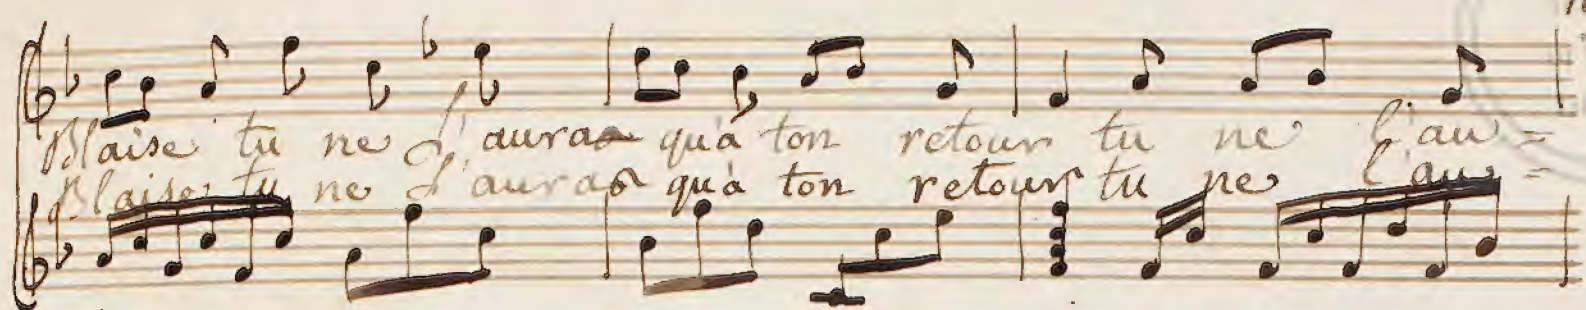 Blaise tu ne l'auras qu'à ton retour tu ne l'au =
Blaise tu ne l'auras qu'à ton retour tu ne l'au =